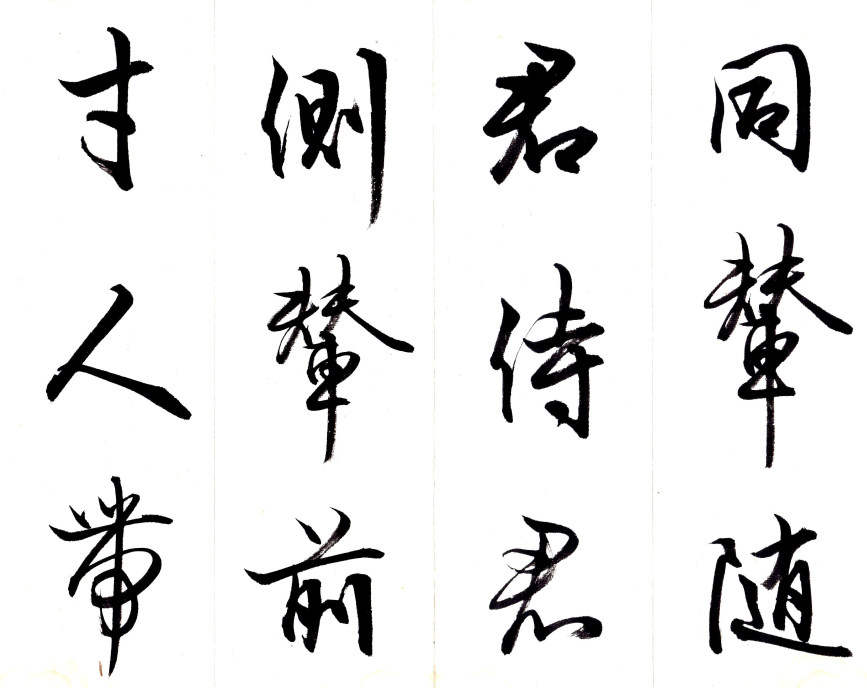 同輦随
君侍君
側輦前
才人帯